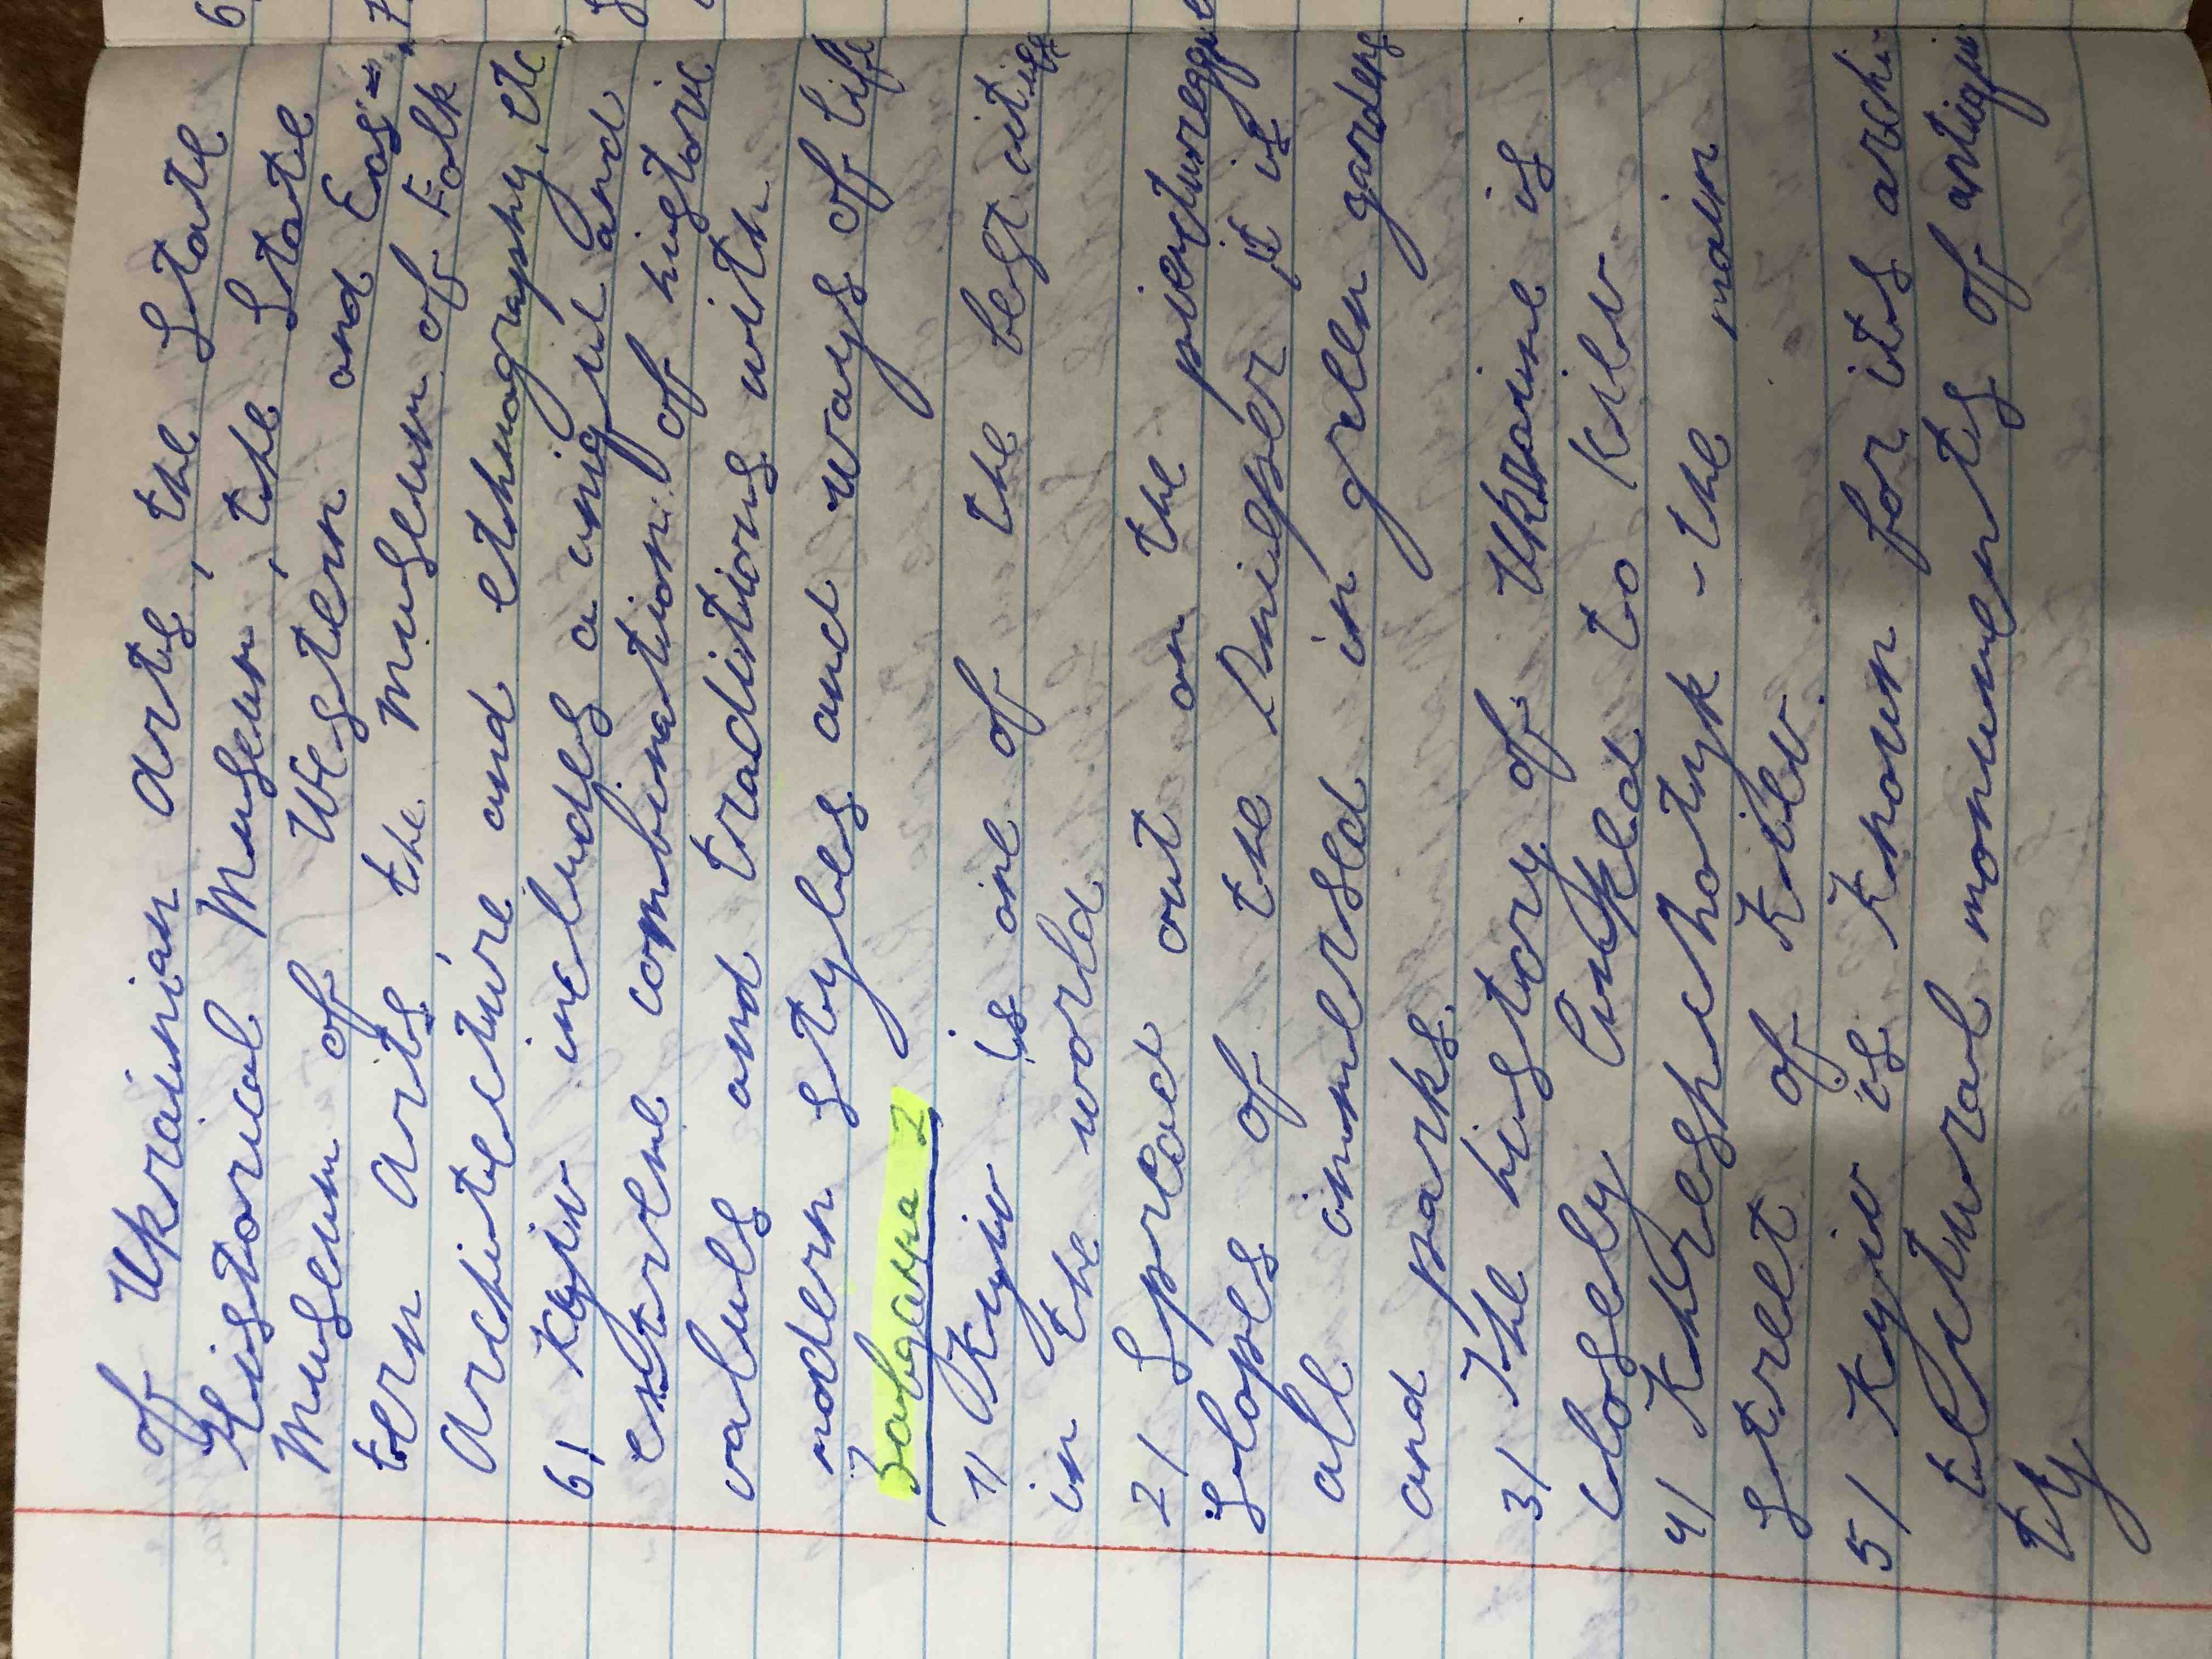 of Ukrainian Arts, the State
Historical Museum, the State
Museum of Western and Eas-
tern Arts, the Museum of Folk
Architecture and ethnography, etc
6) Kyiv includes a unique and
extreme combination of historic
values and traditions with
modern styles and ways of life
Завдання 2
1) Kyiv is one of the best cities
in the world
2) Spread out on the
slopes of the Dnieper it is
all immersed in green gardens
and parks.
3) The history of Ukraine is
closely linked to Kiev.
4) Khreshchatyk - the main
street of Kiev.
5) Kyiv is known for its archi-
tectural monuments of antiqui
ty